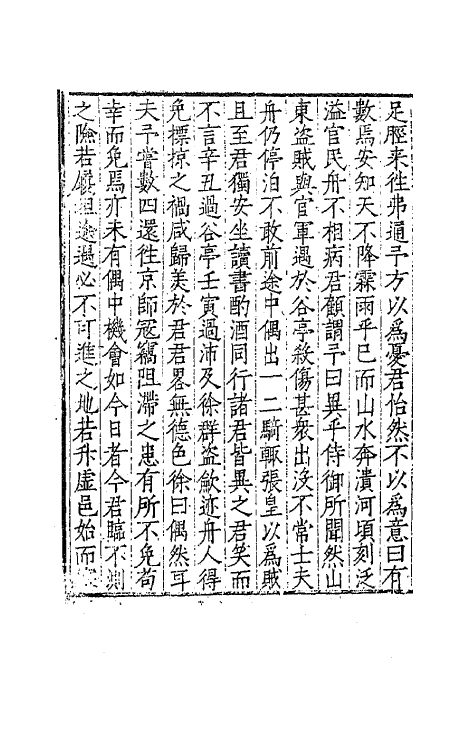 足脛来徃弗通予方以為憂君怡然不以為意曰有
數焉安知天不降霖雨乎已而山水奔潰河頃刻泛
溢官民舟不相病君顧謂予曰異乎侍御所聞然山
東盗賊與官軍遇於谷亭殺傷甚衆出没不常士夫
舟仍停泊不敢前途中偶出一二騎輒張皇以為賊
且至君獨安坐讀書酌酒同行諸君皆異之君笑而
不言辛丑過谷亭壬寅過沛及徐群盗歛迹舟人得
免摽掠之禍咸歸美於君君畧無德色徐曰偶然耳
夫予嘗數四還徃京師冦竊阻滯之患有所不免苟
幸而免焉亦未有偶中機會如今日者今君臨不測
之險若履坦途過必不可進之地若升虚邑始而